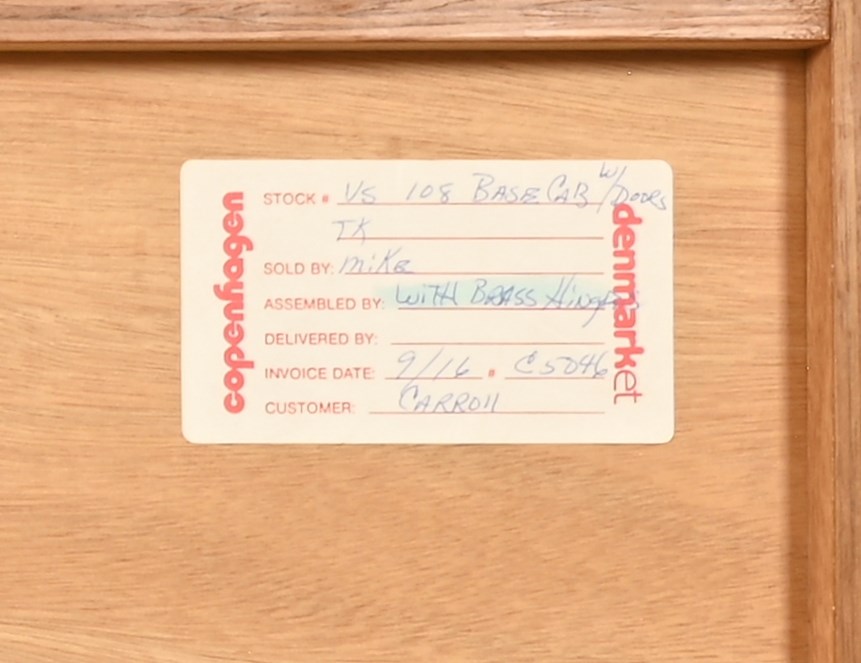 copenhagen
STOCK # VS 108 BASE CAB W/ DOORS
TK
SOLD BY: MIKE
ASSEMBLED BY: WITH BRASS HINGES
DELIVERED BY:
INVOICE DATE: 9/16 # C5046
CUSTOMER: CARROll
denmarket